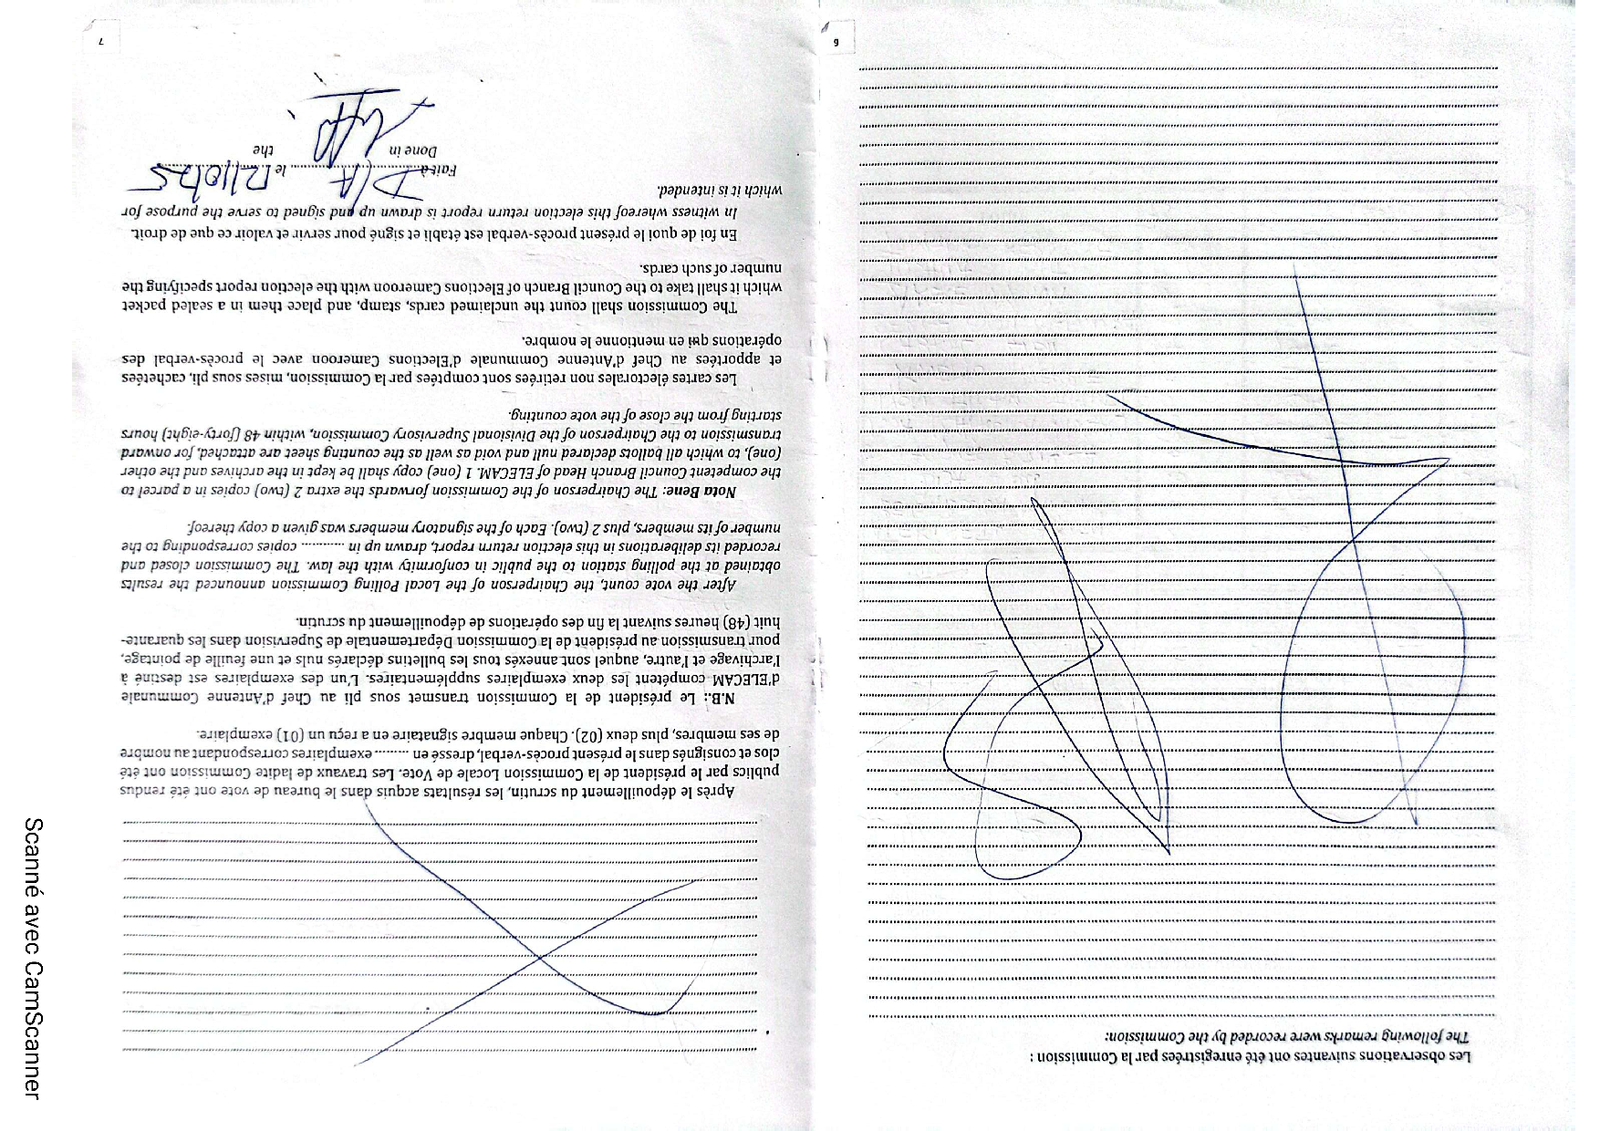 Les observations suivantes ont été enregistrées par la Commission :
The following remarks were recorded by the Commission:
6
Après le dépouillement du scrutin, les résultats acquis dans le bureau de vote ont été rendus
publics par le président de la Commission Locale de Vote. Les travaux de ladite Commission ont été
clos et consignés dans le présent procès-verbal, dressé en ......... exemplaires correspondant au nombre
de ses membres, plus deux (02). Chaque membre signataire en a reçu un (01) exemplaire.
N.B.: Le président de la Commission transmet sous pli au Chef d'Antenne Communale
d'ELECAM compétent les deux exemplaires supplémentaires. L'un des exemplaires est destiné à
l'archivage et l'autre, auquel sont annexés tous les bulletins déclarés nuls et une feuille de pointage,
pour transmission au président de la Commission Départementale de Supervision dans les quarante-
huit (48) heures suivant la fin des opérations de dépouillement du scrutin.
After the vote count, the Chairperson of the Local Polling Commission announced the results
obtained at the polling station to the public in conformity with the law. The Commission closed and
recorded its deliberations in this election return report, drawn up in ........... copies corresponding to the
number of its members, plus 2 (two). Each of the signatory members was given a copy thereof.
Nota Bene: The Chairperson of the Commission forwards the extra 2 (two) copies in a parcel to
the competent Council Branch Head of ELECAM. 1 (one) copy shall be kept in the archives and the other
(one), to which all ballots declared null and void as well as the counting sheet are attached, for onward
transmission to the Chairperson of the Divisional Supervisory Commission, within 48 (forty-eight) hours
starting from the close of the vote counting.
Les cartes électorales non retirées sont comptées par la Commission, mises sous pli, cachetées
et apportées au Chef d'Antenne Communale d'Elections Cameroon avec le procès-verbal des
opérations qui en mentionne le nombre.
The Commission shall count the unclaimed cards, stamp, and place them in a sealed packet
which it shall take to the Council Branch of Elections Cameroon with the election report specifying the
number of such cards.
En foi de quoi le présent procès-verbal est établi et signé pour servir et valoir ce que de droit.
In witness whereof this election return report is drawn up and signed to serve the purpose for
which it is intended.
Fait à D/A le 12/10/25
Done in the
7
Scanné avec CamScanner